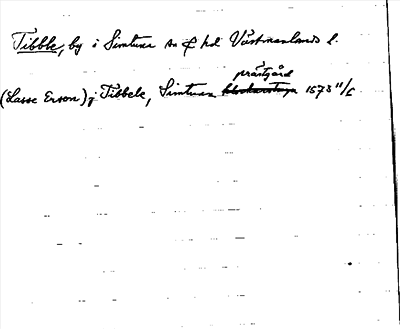 Tibble, by i Simtuna sn o hd Västmanlands l.
prästgård
(Lasse Erson) j Tibbele, Simtuna klockarstuga 1573 11/6